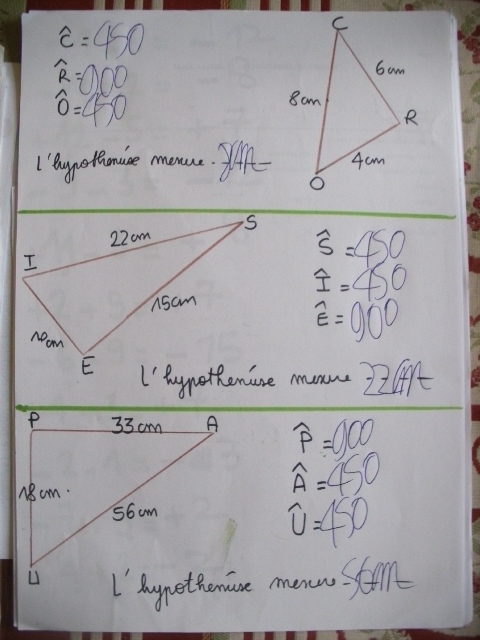 Ĉ = 450
R̂ = 900
Ô = 450
C
6cm
8cm
R
4cm
O
L'hypothénuse mesure
S
22cm
I
15cm
10cm
E
Ŝ = 450
Î = 450
Ê = 900
L'hypothénuse mesure 22cm
P
33cm
A
18cm
56cm
U
P̂ = 900
Â = 450
Û = 450
L'hypothénuse mesure 56cm